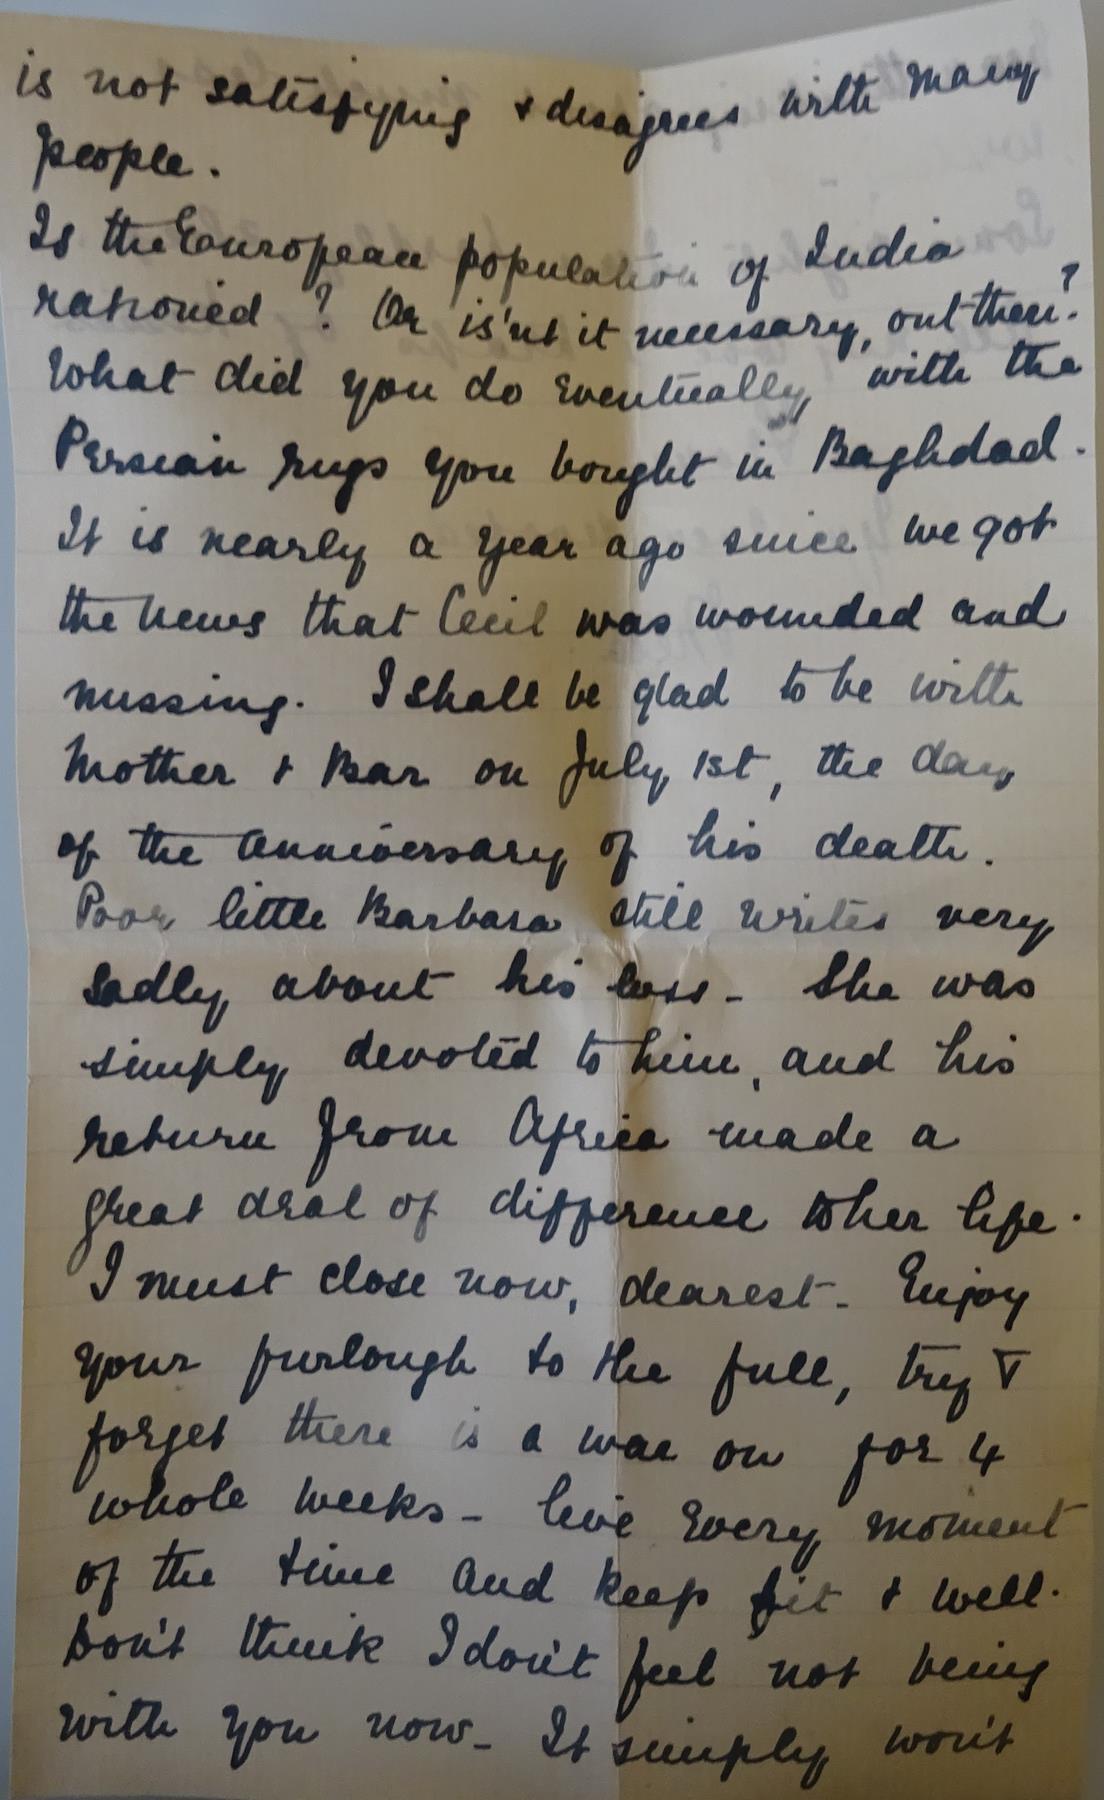 is not satisfying & disagrees with many
people.
Is the European population of India
rationed? Or is'nt it necessary, out there?
What did you do eventually, with the
Persian rugs you bought in Baghdad.
It is nearly a year ago since we got
the news that Cecil was wounded and
missing. I shall be glad to be with
Mother & Bar on July 1st, the day
of the anniversary of his death.
Poor little Barbara still writes very
sadly about his loss - She was
simply devoted to him, and his
return from Africa made a
great deal of difference to her life.
I must close now, dearest - Enjoy
your furlough to the full, try T
forget there is a war on for 4
whole weeks - live every moment
of the time and keep fit & well.
Don't think I don't feel not being
with you now - It simply won't